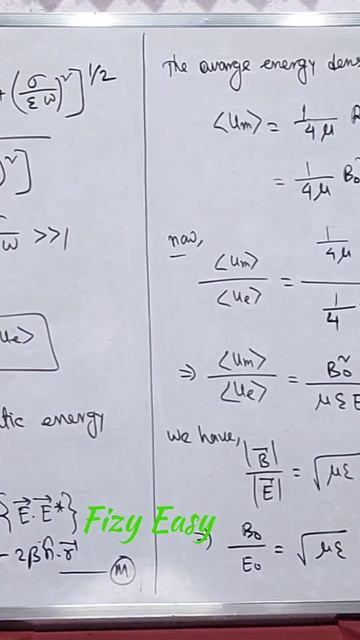 + (σ/εω)²]^1/2
)²]
σ/ω >>1
ue>
tic energy
{E⃗.E⃗*}
- 2βn̂.r⃗
M
The avarge energy dens
<um> = 1/4μ
= 1/4μ B₀
now,
<um>/<ue> = 1/4μ / 1/4
⇒ <um>/<ue> = B₀²/με E
we have,
|B⃗|/|E⃗| = √με
⇒ B₀/E₀ = √με
Fizy Easy